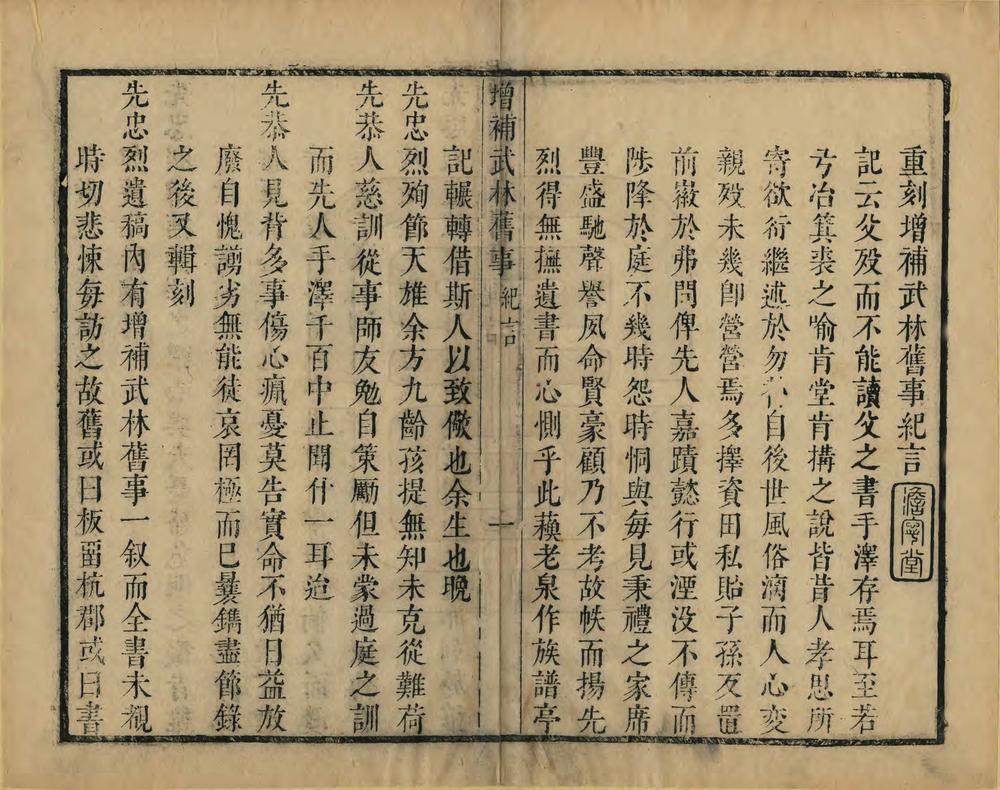 重刻增補武林舊事紀言
澹寧堂
記云父歿而不能讀父之書手澤存焉耳至若
弓冶箕裘之喻肯堂肯搆之說皆昔人孝思所
寄欲衍繼述於勿替自後世風俗漓而人心变
親歿未幾卽營營焉多擇資田私貽子孫反置
前徽於弗問俾先人嘉蹟懿行或湮没不傳而
陟降於庭不幾時怨時恫與每見秉禮之家席
豐盛馳聲譽夙命賢豪顧乃不考故帙而揚先
烈得無撫遺書而心惻乎此蘓老泉作族譜亭
增補武林舊事 紀言 一
記輾轉借斯人以致儆也余生也晚
先忠烈殉節天雄余方九齡孩提無知未克從難荷
先恭人慈訓從事師友勉自策勵但未蒙過庭之訓
而先人手澤千百中止聞什一耳迨
先恭人見背多事傷心瘋憂莫告實命不猶日益放
廢自愧謭劣無能徒哀罔極而已曩鐫盡節錄
之後叉輯刻
先忠烈遺稿內有增補武林舊事一叙而全書未覩
時切悲悚每訪之故舊或曰板畱杭郡或曰書